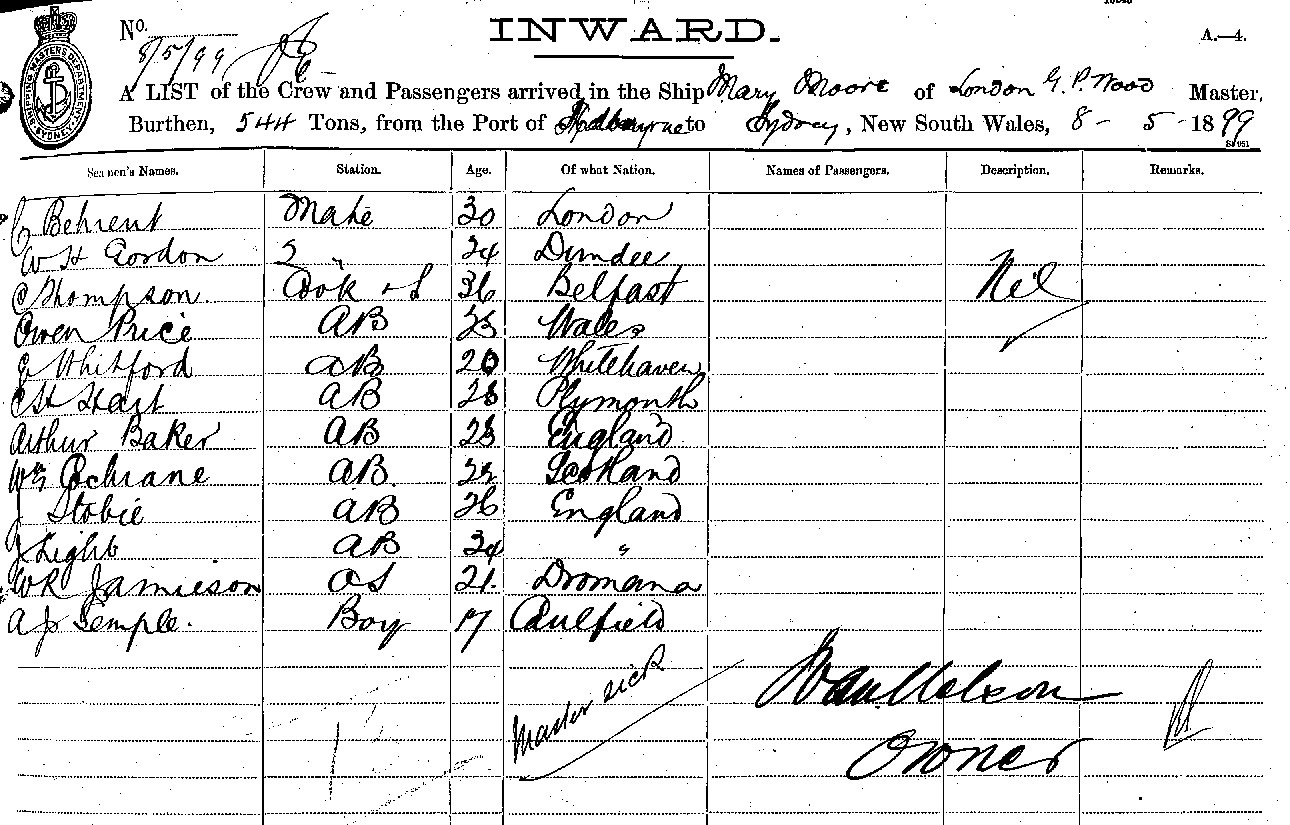 INWARD.
No.
8/5/99
A.—4.
SHIPPING MASTERS DEPARTMENT SYDNEY
A LIST of the Crew and Passengers arrived in the Ship Mary Moore of London G. P. Wood Master,
Burthen, 544 Tons, from the Port of Melbourne to Sydney, New South Wales, 8 - 5 - 1899
Seamen's Names. Station. Age. Of what Nation. Names of Passengers. Description. Remarks.
Behrent Mate 30 London
W H Gordon 2 " 24 Dundee
Thompson. Cook & S 36 Belfast Nil
Owen Price AB 23 Wales
Whitford AB 20 Whitehaven
C H Hart AB 28 Plymouth
Arthur Baker AB 23 England
Wm Cochrane AB. 22 Scotland
J Stobie AB 26 England
J Light AB 34 "
W R Jamieson OS 21. Dromana
A J Temple. Boy 17 Caulfield
Master sick
Owner